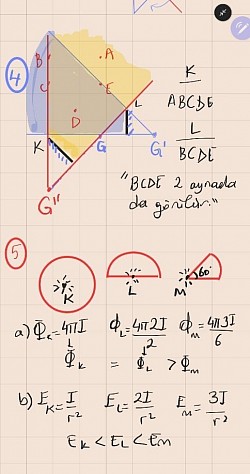 4
B
A
C
E
D
L
K
G
G'
G''
K
ABCDE
L
BCDE
"BCDE 2 aynada
da görülür."
5
K
L
M 60°
a) ΦK = 4πI ΦL = 4π2I/2 ΦM = 4π3I/6
ΦK = ΦL > ΦM
b) EK = I/r² EL = 2I/r² EM = 3I/r²
EK < EL < EM